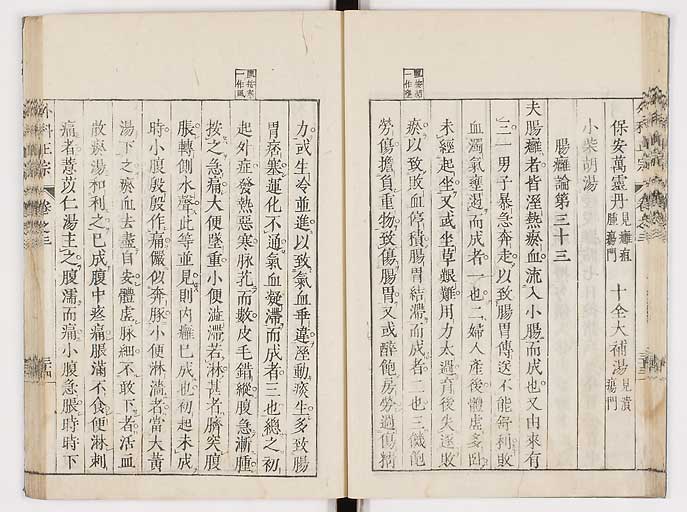 保安萬靈丹見癰疽腫瘍門　十全大補湯見潰瘍門
小柴胡湯
腸癰論第三十三
夫腸癰者皆溼熱瘀血流入小腸而成也又由來有
三一男子暴急奔走以致腸胃傳送不能舒利敗
血濁氣壅遏而成者一也二婦人產後體虛多臥
未經起坐又或坐草艱難用力太過育後失逐敗
瘀以致敗血停積腸胃結滯而成者二也三饑飽
勞傷擔負重物致傷腸胃又或醉飽房勞過傷精
力或生冷並進以致氣血乖違溼動痰生多致腸
胃痞塞運化不通氣血凝滯而成者三也總之初
起外症發熱惡寒脉芤而數皮毛錯縱腹急漸腫
按之急痛大便墜重小便澁滯若淋甚者臍突腹
脹轉側水聲此等並見則內癰已成也初起未成
時小腹殷殷作痛儼似奔豚小便淋澁者當大黃
湯下之瘀血去盡自安體虛脉細不敢下者活血
散瘀湯和利之已成腹中疼痛脹滿不食便淋刺
痛者薏苡仁湯主之腹濡而痛小腹急脹時時下
外科正宗
卷之三